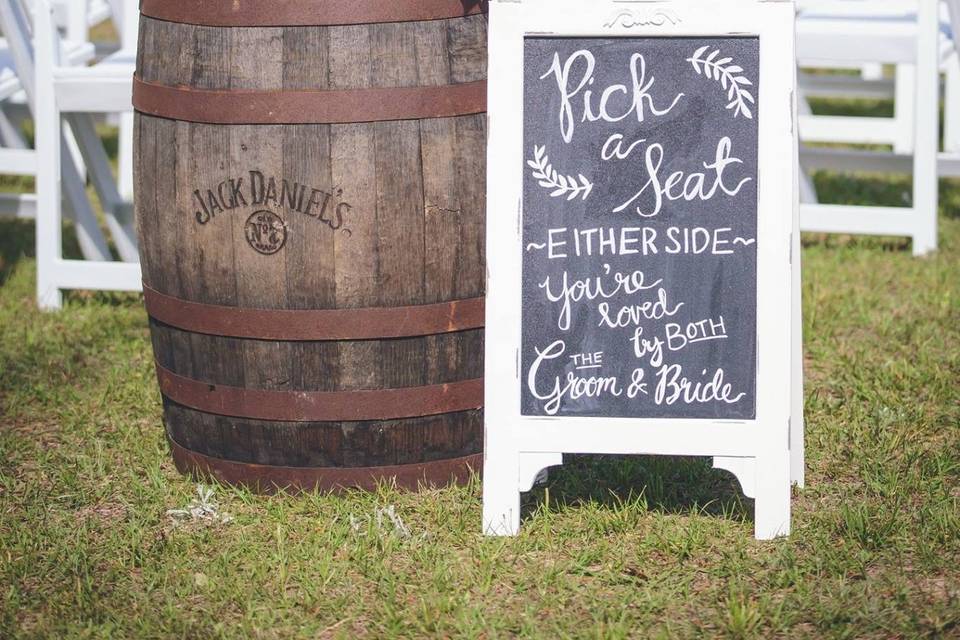 JACK DANIEL'S
OLD
No. 7
BRAND
Pick
a
Seat
~EITHER SIDE~
You're
loved
by BOTH
THE
Groom & Bride